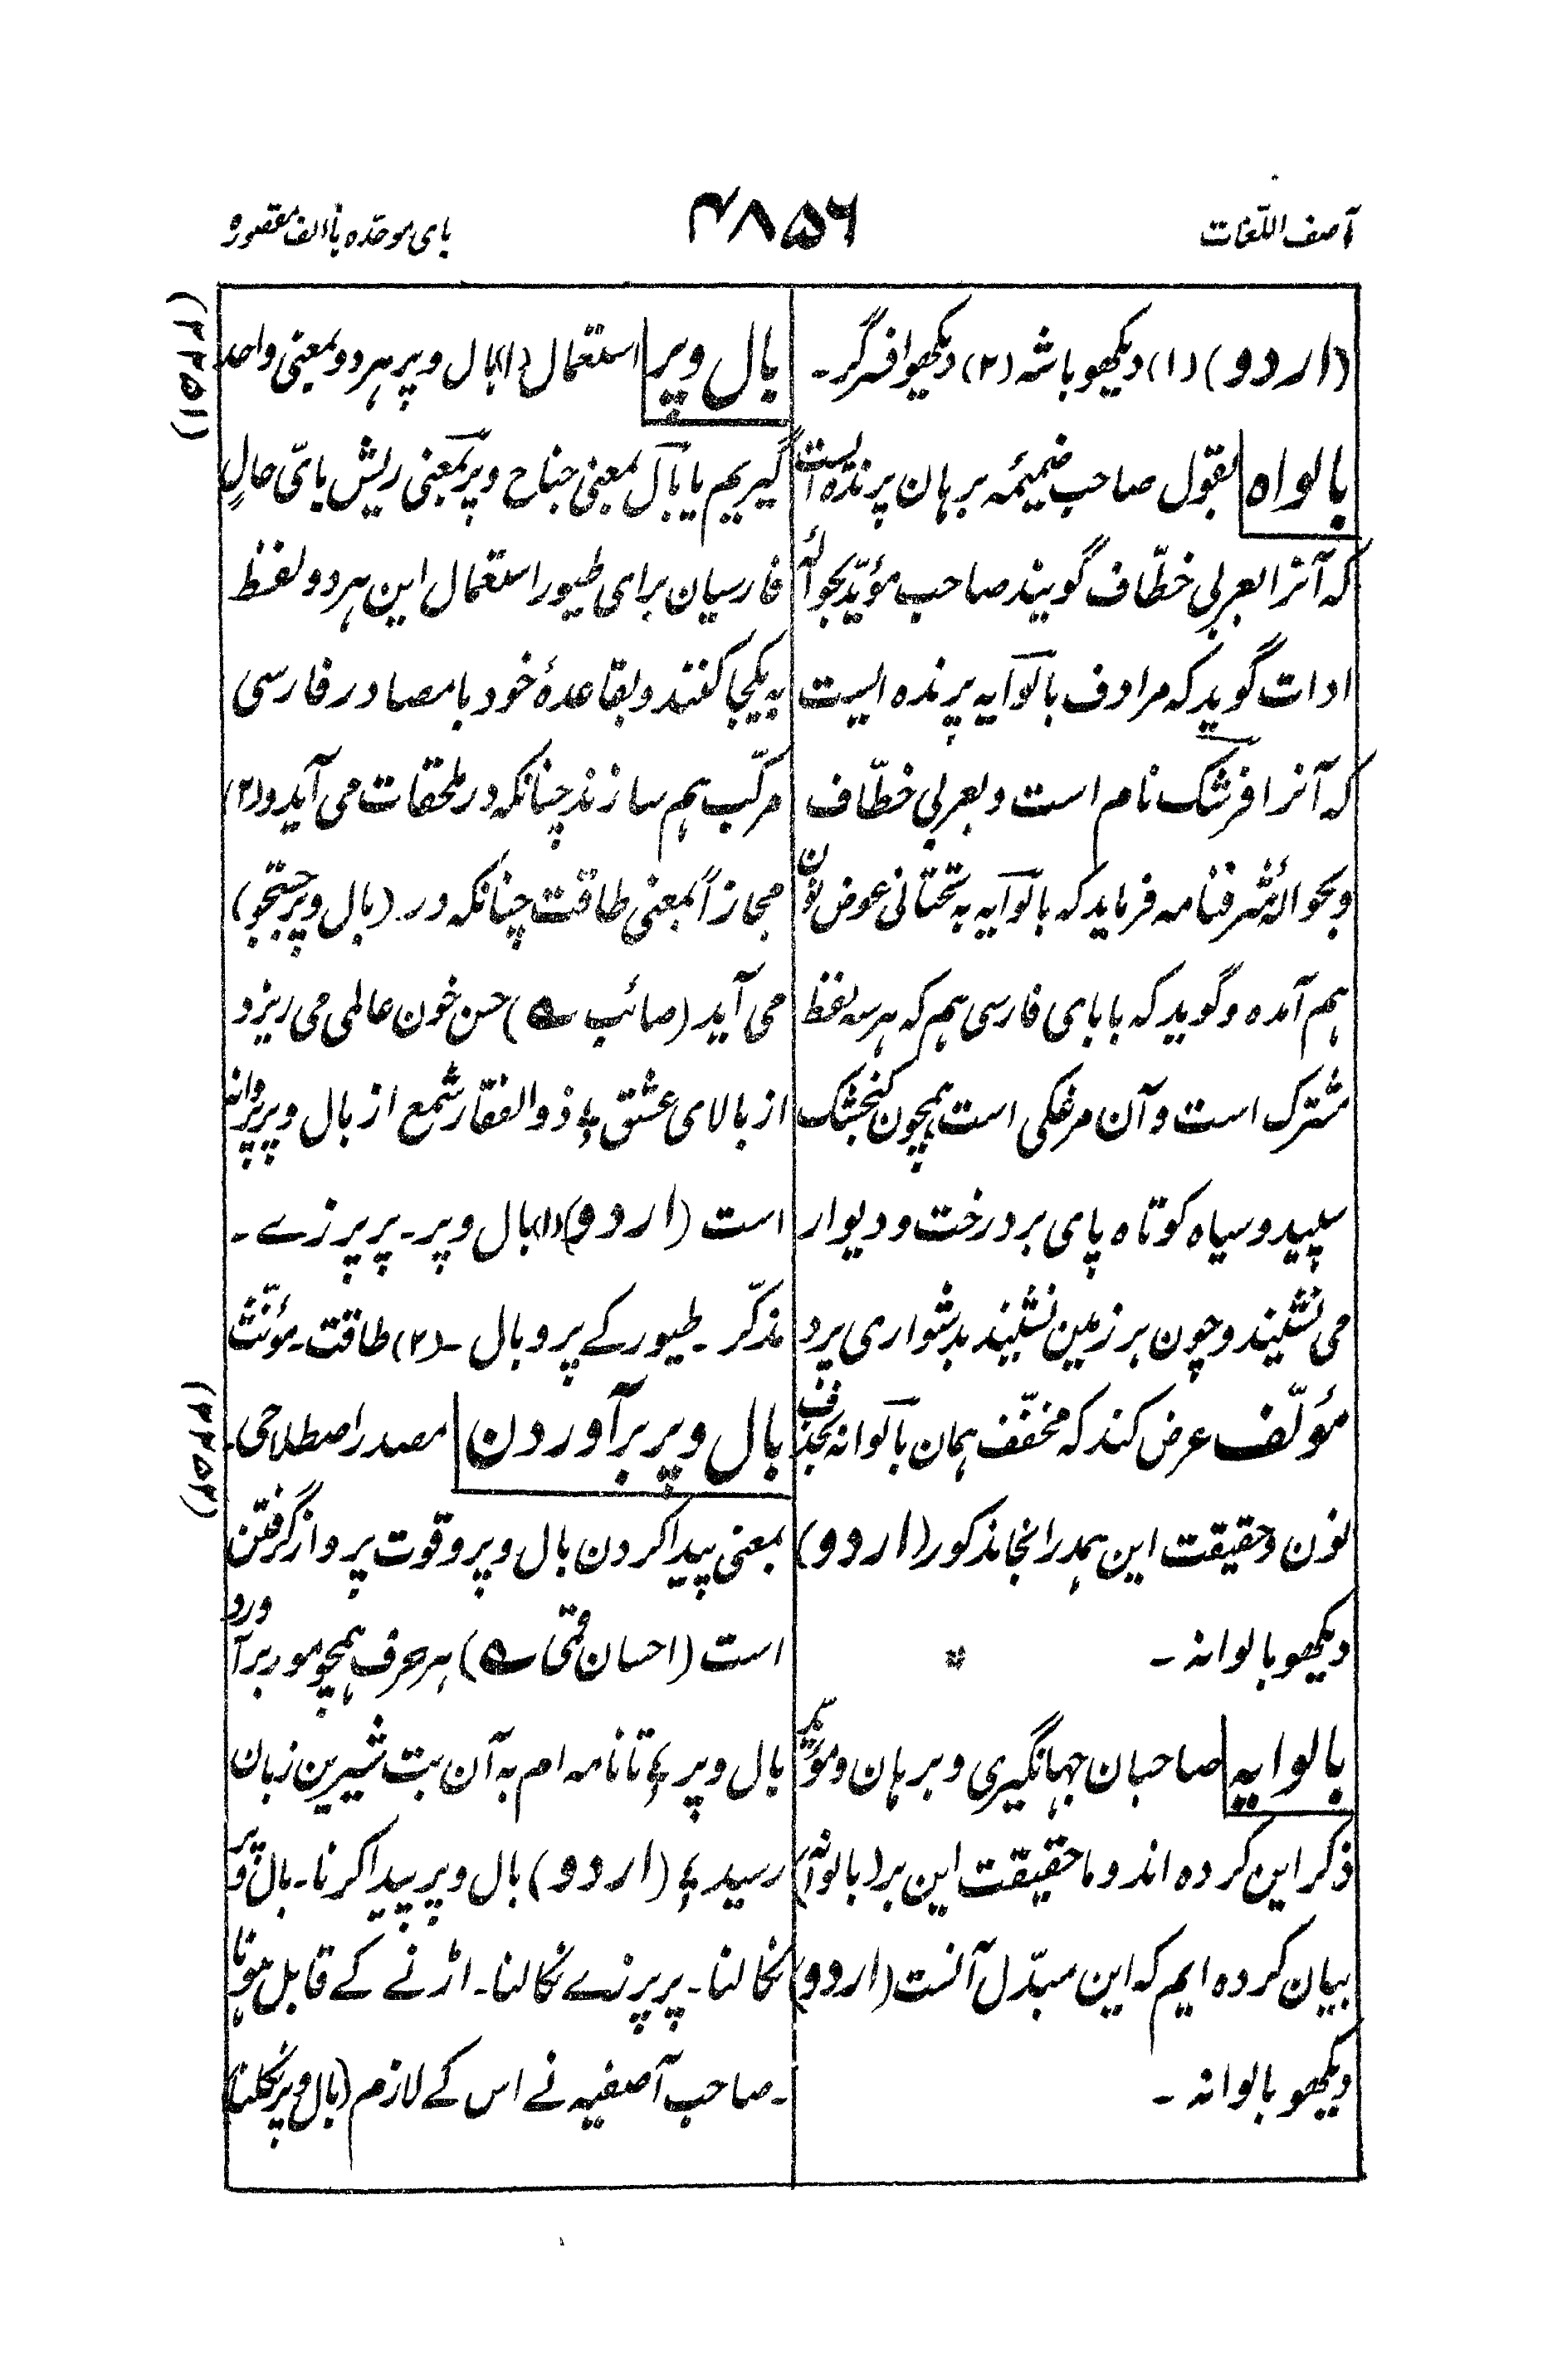 آصف اللّغات
۴۸۵۶
بای موحّده باالف مقصوره
(اردو) (۱) دیکھو باشہ (۲) دیکھو افسرگر۔
بالواہ بقول صاحب ضمیمۂ برہان پرندہ ایست
کہ آنرا بعربی خطّاف گویند صاحب مؤیّد بحوالہٴ
ادات گوید کہ مرادف بالوآیہ پرندہ ایست
کہ آنرا فرشک نام است و بعربی خطّاف
و بحوالۂ شرفنامہ فرماید کہ بالوآیہ بہ تحتانی عوض نون
ہم آمدہ و گوید کہ با بای فارسی ہم کہ ہرسہ لفظ
مشترک است و آن مرغکی است ہمچون گنجشک
سپید و سیاہ کوتاہ پای بر درخت و دیوار
می نشیند و چون بر زمین نشیند بدشواری پرد
مؤلّف عرض کند کہ مخفّف ہمان بآلوانہ بحذف
نون و حقیقت این ہمدرانجا مذکور (اردو)
دیکھو بالوانہ ۔
بالوایہ صاحبان جہانگیری و برہان و مؤیّد
ذکر این کردہ اند و ما حقیقت این بر (بالوانہ)
بیان کردہ ایم کہ این مبدّل آنست (اردو)
دیکھو بالوانہ ۔
بال و پر استعمال (۱) بال و پر ہر دو بمعنی واحد
(۲۲۵۱)
گیریم یا بآل بمعنی جناح و پر بمعنی ریش بایّ حالٍ
فارسیان برای طیور استعمال این ہر دو لفظ
بہ یکجا کنند و بقاعدۂ خود با مصادر فارسی
مرکّب ہم سازند چنانکہ در ملحقات می آید و (۲)
مجازاً بمعنی طاقت چنانکہ در (بال و پر جستجو)
می آید (صائب ؎) حسن خون عالمی می ریزد
از بالای عشق ؛ ذوالفقار شمع از بال و پر پروانہ
است (اردو) (۱) بال و پر۔ پر پرزے۔
مذکّر۔ طیور کے پر و بال ۔ (۲) طاقت۔ مؤنّث
بال و پر برآوردن مصدر اصطلاحی۔
بمعنی پیدا کردن بال و پر و قوت پرواز گرفتن
است (احسان قمی ؎) ہر حرف ہمچو مور برآورد
بال و پر ؛ تا نامہ ام بہ آن بت شیرین زبان
رسید ؛ (اردو) بال و پر پیدا کرنا۔ بال و پر
نکالنا۔ پر پرزے نکالنا۔ اڑنے کے قابل ہونا
۔ صاحب آصفیہ نے اس کے لازم (بال و پر نکلنا)